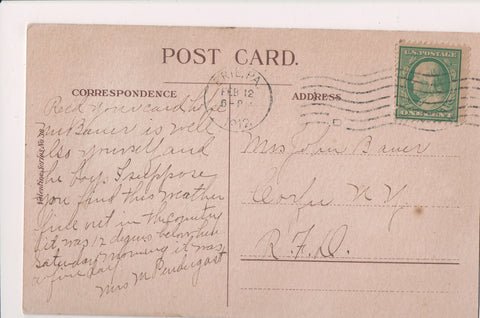 POST CARD.
CORRESPONDENCE
ADDRESS
ERIE, PA
FEB 12
6-PM
U.S. POSTAGE
ONE CENT
Valentines Series No.
Recd your card hope
Mr Bauer is well
also yourself and
the boy. I suppose
you find this weather
fine out in the country
it was 12 degrees below here
Saturday morning it was
a fine day
Mrs M Pendergast
Mrs John Bauer
Corfu N.Y.
R.F.D.